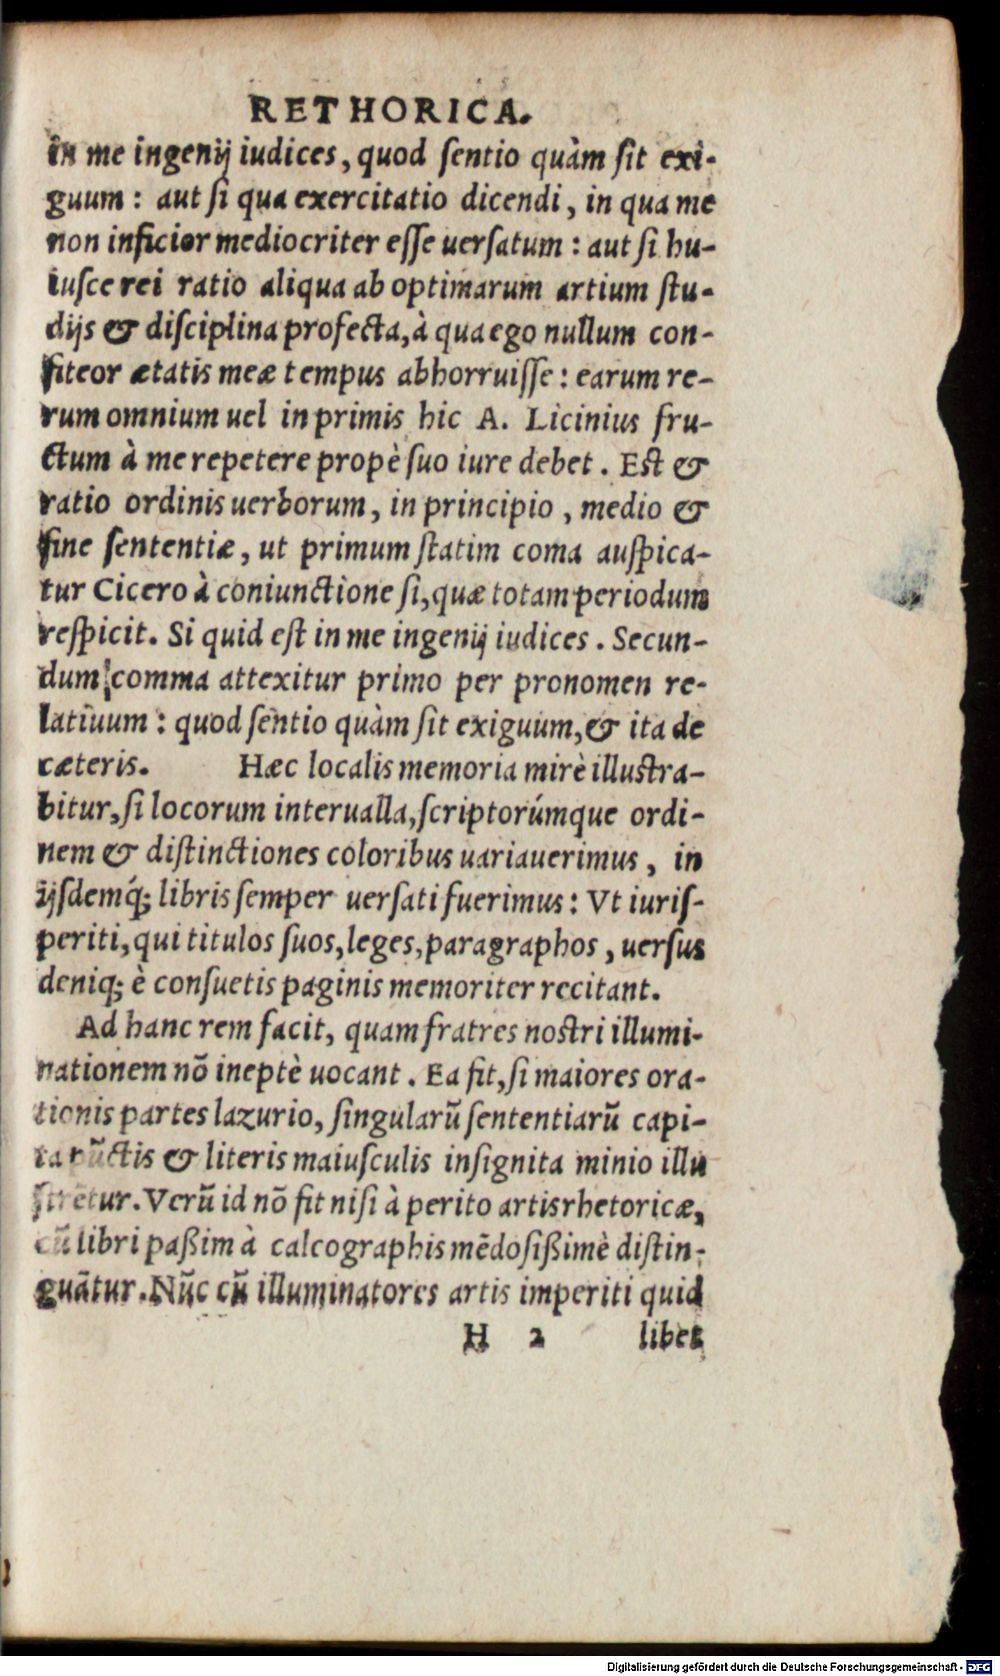 RETHORICA.
in me ingenij iudices, quod ſentio quàm ſit exi-
guum : aut ſi qua exercitatio dicendi, in qua me
non inficior mediocriter eſſe uerſatum : aut ſi hu-
iuſce rei ratio aliqua ab optimarum artium ſtu-
dijs & diſciplina profecta, à qua ego nullum con-
fiteor ætatis meæ tempus abhorruiſſe : earum re-
rum omnium uel in primis hic A. Licinius fru-
ctum à me repetere propè ſuo iure debet. Eſt &
ratio ordinis uerborum, in principio, medio &
fine ſententiæ, ut primum ſtatim coma auſpica-
tur Cicero à coniunctione ſi, quæ totam periodum
reſpicit. Si quid eſt in me ingenij iudices. Secun-
dum comma attexitur primo per pronomen re-
latiuum : quod ſentio quàm ſit exiguum, & ita de
cæteris. Hæc localis memoria mirè illuſtra-
bitur, ſi locorum interualla, ſcriptorúmque ordi-
nem & diſtinctiones coloribus uariauerimus, in
ijſdemq́; libris ſemper uerſati fuerimus : Vt iuriſ-
periti, qui titulos ſuos, leges, paragraphos, uerſus
deniq; è conſuetis paginis memoriter recitant.
Ad hanc rem facit, quam fratres noſtri illumi-
nationem nõ ineptè uocant. Ea fit, ſi maiores ora-
tionis partes lazurio, ſingularũ ſententiarũ capi-
ta pũctis & literis maiuſculis inſignita minio illu
ſtrẽtur. Verũ id nõ fit niſi à perito artis rhetoricæ,
cũ libri paßim à calcographis mẽdoſißimè diſtin-
guãtur. Nũc cũ illuminatores artis imperiti quid
H 2 libet
Digitalisierung gefördert durch die Deutsche Forschungsgemeinschaft - DFG